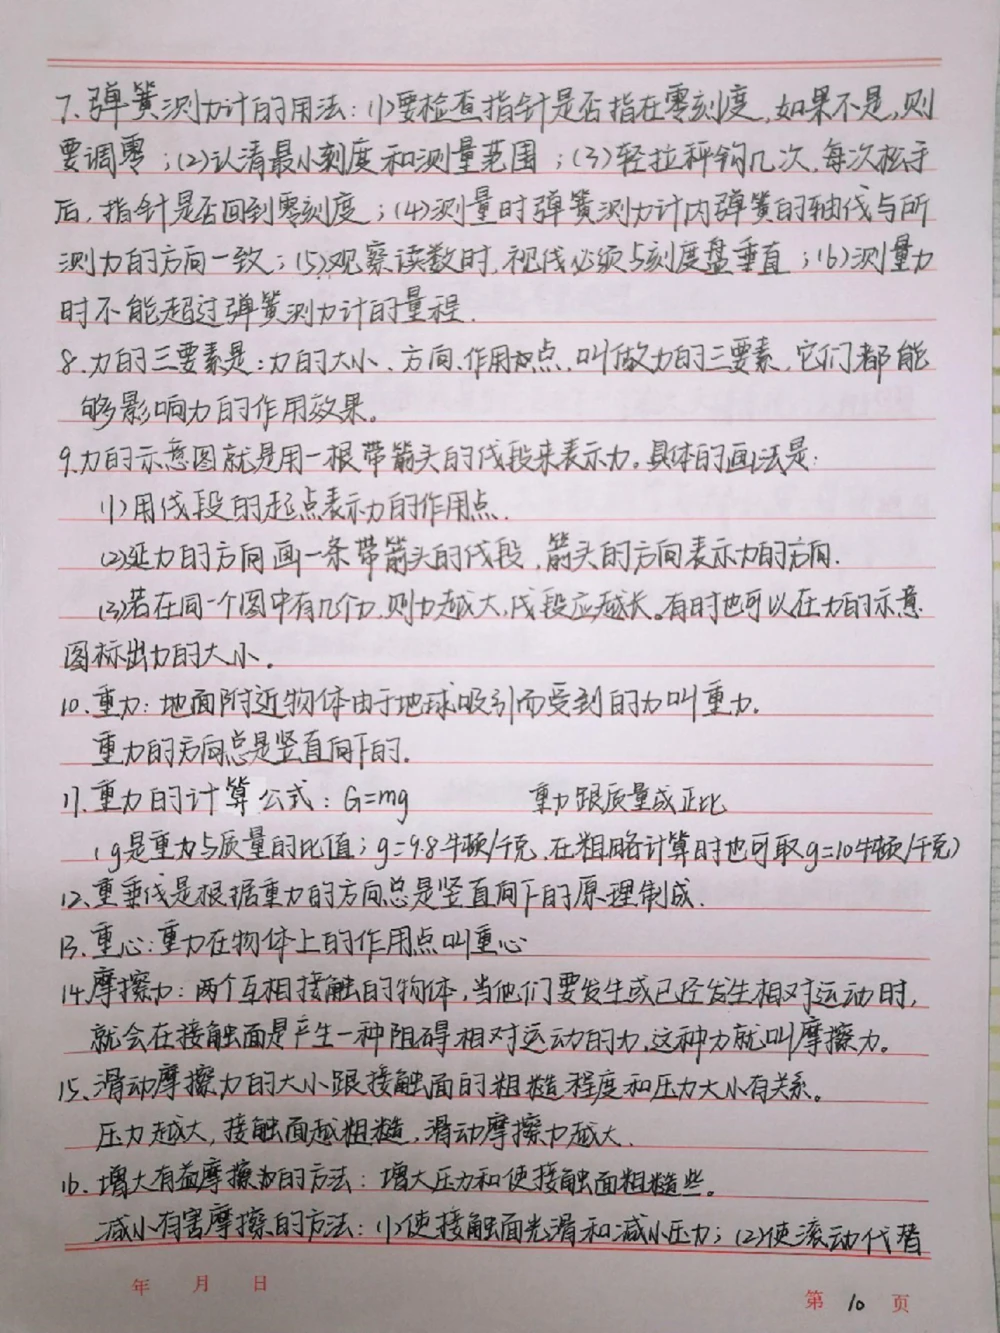 7.弹簧测力计的用法：(1)要检查指针是否指在零刻度,如果不是,则
要调零；(2)认清最小刻度和测量范围；(3)轻拉秤钩几次,每次松手
后,指针是否回到零刻度；(4)测量时弹簧测力计内弹簧的轴线与所
测力的方向一致；(5)观察读数时,视线必须与刻度盘垂直；(6)测量力
时不能超过弹簧测力计的量程.
8.力的三要素是：力的大小、方向、作用点,叫做力的三要素,它们都能
够影响力的作用效果。
9.力的示意图就是用一根带箭头的线段来表示力。具体的画法是:
(1)用线段的起点表示力的作用点.
(2)延力的方向画一条带箭头的线段,箭头的方向表示力的方向.
(3)若在同一个图中有几个力,则力越大,线段应越长。有时也可以在力的示意
图标出力的大小。
10.重力：地面附近物体由于地球吸引而受到的力叫重力.
重力的方向总是竖直向下的.
11.重力的计算公式：G=mg 重力跟质量成正比
(g是重力与质量的比值；g=9.8牛顿/千克,在粗略计算时也可取g=10牛顿/千克)
12.重垂线是根据重力的方向总是竖直向下的原理制成.
13.重心:重力在物体上的作用点叫重心
14.摩擦力：两个互相接触的物体,当他们要发生或已经发生相对运动时,
就会在接触面是产生一种阻碍相对运动的力,这种力就叫摩擦力。
15.滑动摩擦力的大小跟接触面的粗糙程度和压力大小有关系。
压力越大,接触面越粗糙,滑动摩擦力越大.
16.增大有益摩擦的方法：增大压力和使接触面粗糙些。
减小有害摩擦的方法：(1)使接触面光滑和减小压力；(2)使滚动代替
年 月 日
第 10 页